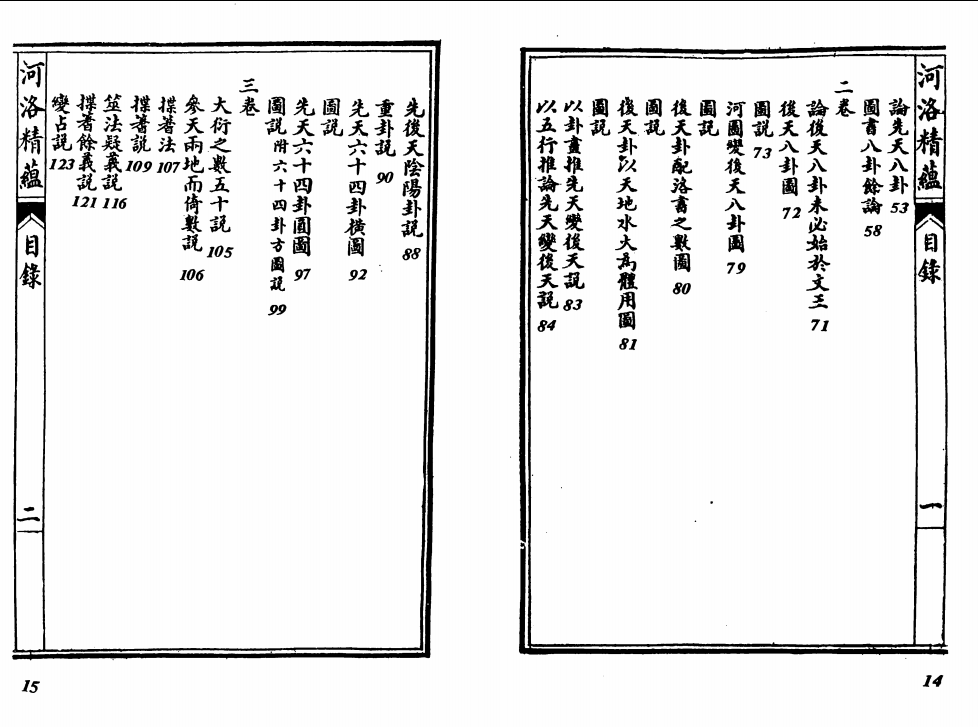 河洛精蘊
目錄
一
論先天八卦 53
圖書八卦餘論 58
二卷
論後天八卦未必始於文王 71
後天八卦圖 72
圖說 73
河圖變後天八卦圖 79
圖說
後天卦配洛書之數圖 80
圖說
後天卦以天地水火為體用圖 81
圖說
以卦畫推先天變後天說 83
以五行推論先天變後天說 84
14
先後天陰陽卦說 88
重卦說 90
先天六十四卦橫圖 92
圖說
先天六十四卦圓圖 97
圖說附六十四卦方圖說 99
三卷
大衍之數五十說 105
參天兩地而倚數說 106
揲蓍法 107
揲蓍說 109
筮法疑義說 116
揲蓍餘義說 121
變占說 123
河洛精蘊
目錄
二
15